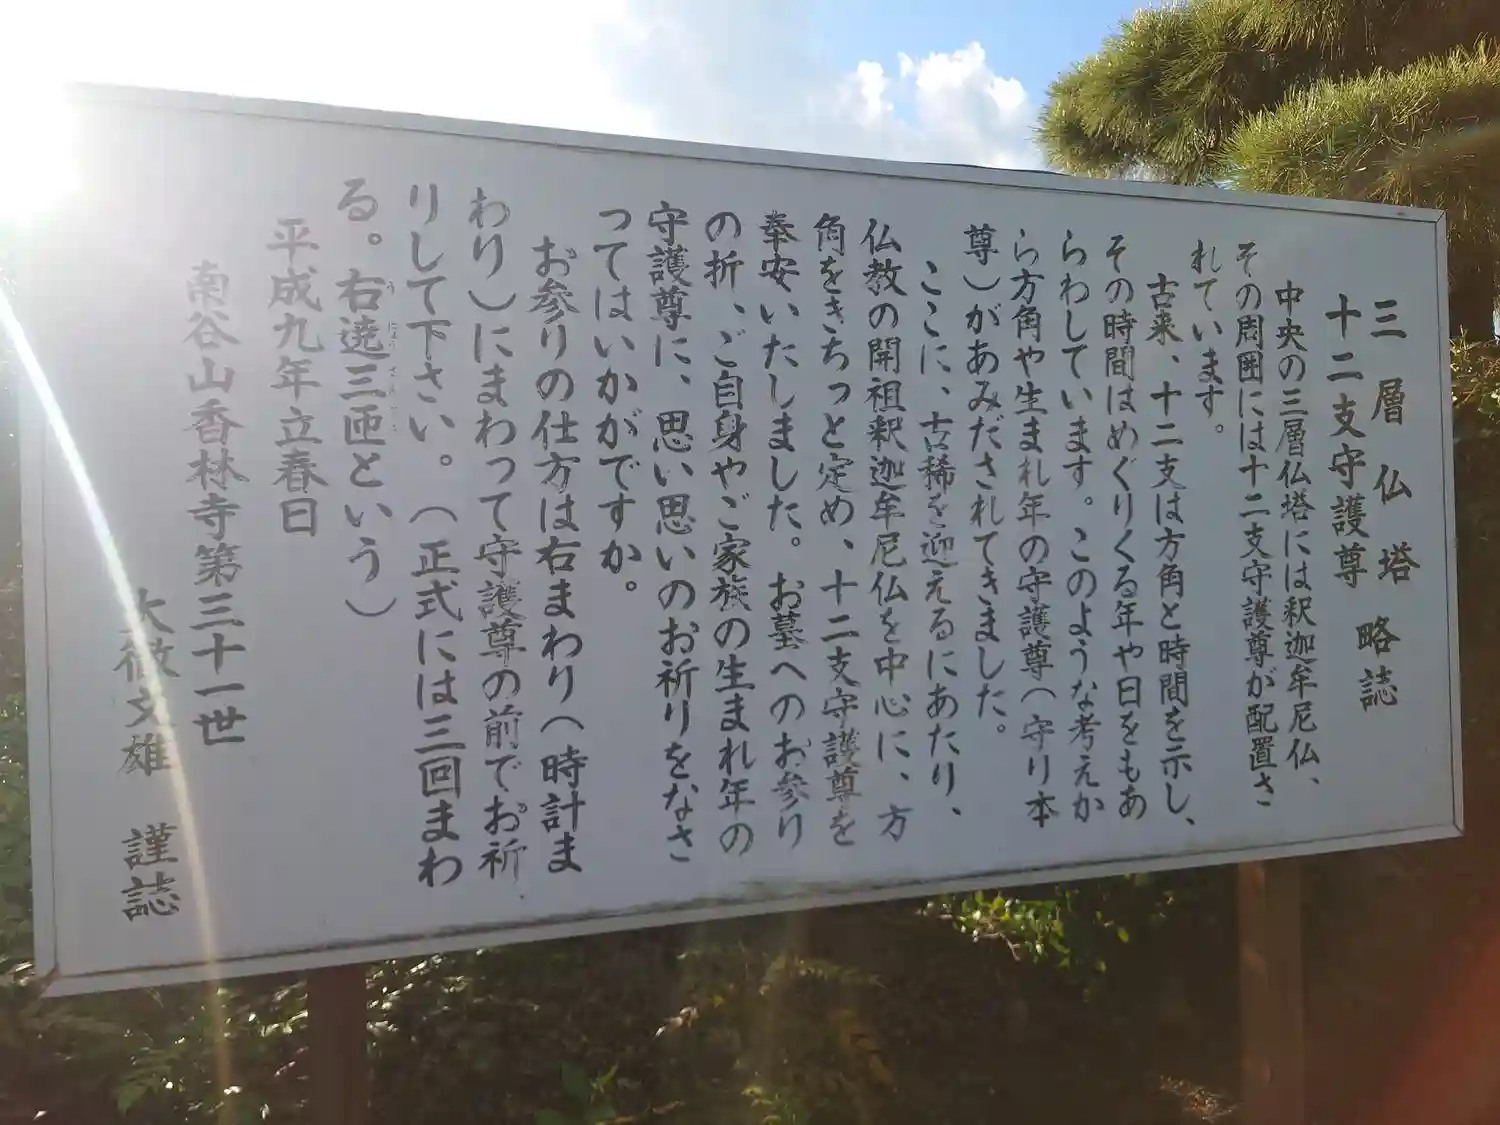 三層仏塔
十二支守護尊 略誌
中央の三層仏塔には釈迦牟尼仏、
その周囲には十二支守護尊が配置さ
れています。
古来、十二支は方角と時間を示し、
その時間はめぐりくる年や日をもあ
らわしています。このような考えか
ら方角や生まれ年の守護尊(守り本
尊)があみだされてきました。
ここに、古稀を迎えるにあたり、
仏教の開祖釈迦牟尼仏を中心に、方
角をきちっと定め、十二支守護尊を
奉安いたしました。お墓へのお参り
の折、ご自身やご家族の生まれ年の
守護尊に、思い思いのお祈りをなさ
ってはいかがですか。
お参りの仕方は右まわり(時計ま
わり)にまわって守護尊の前でお祈
りして下さい。(正式には三回まわ
る。右遶三匝という)
平成九年立春日
南谷山香林寺第三十一世
大徹文雄 謹誌